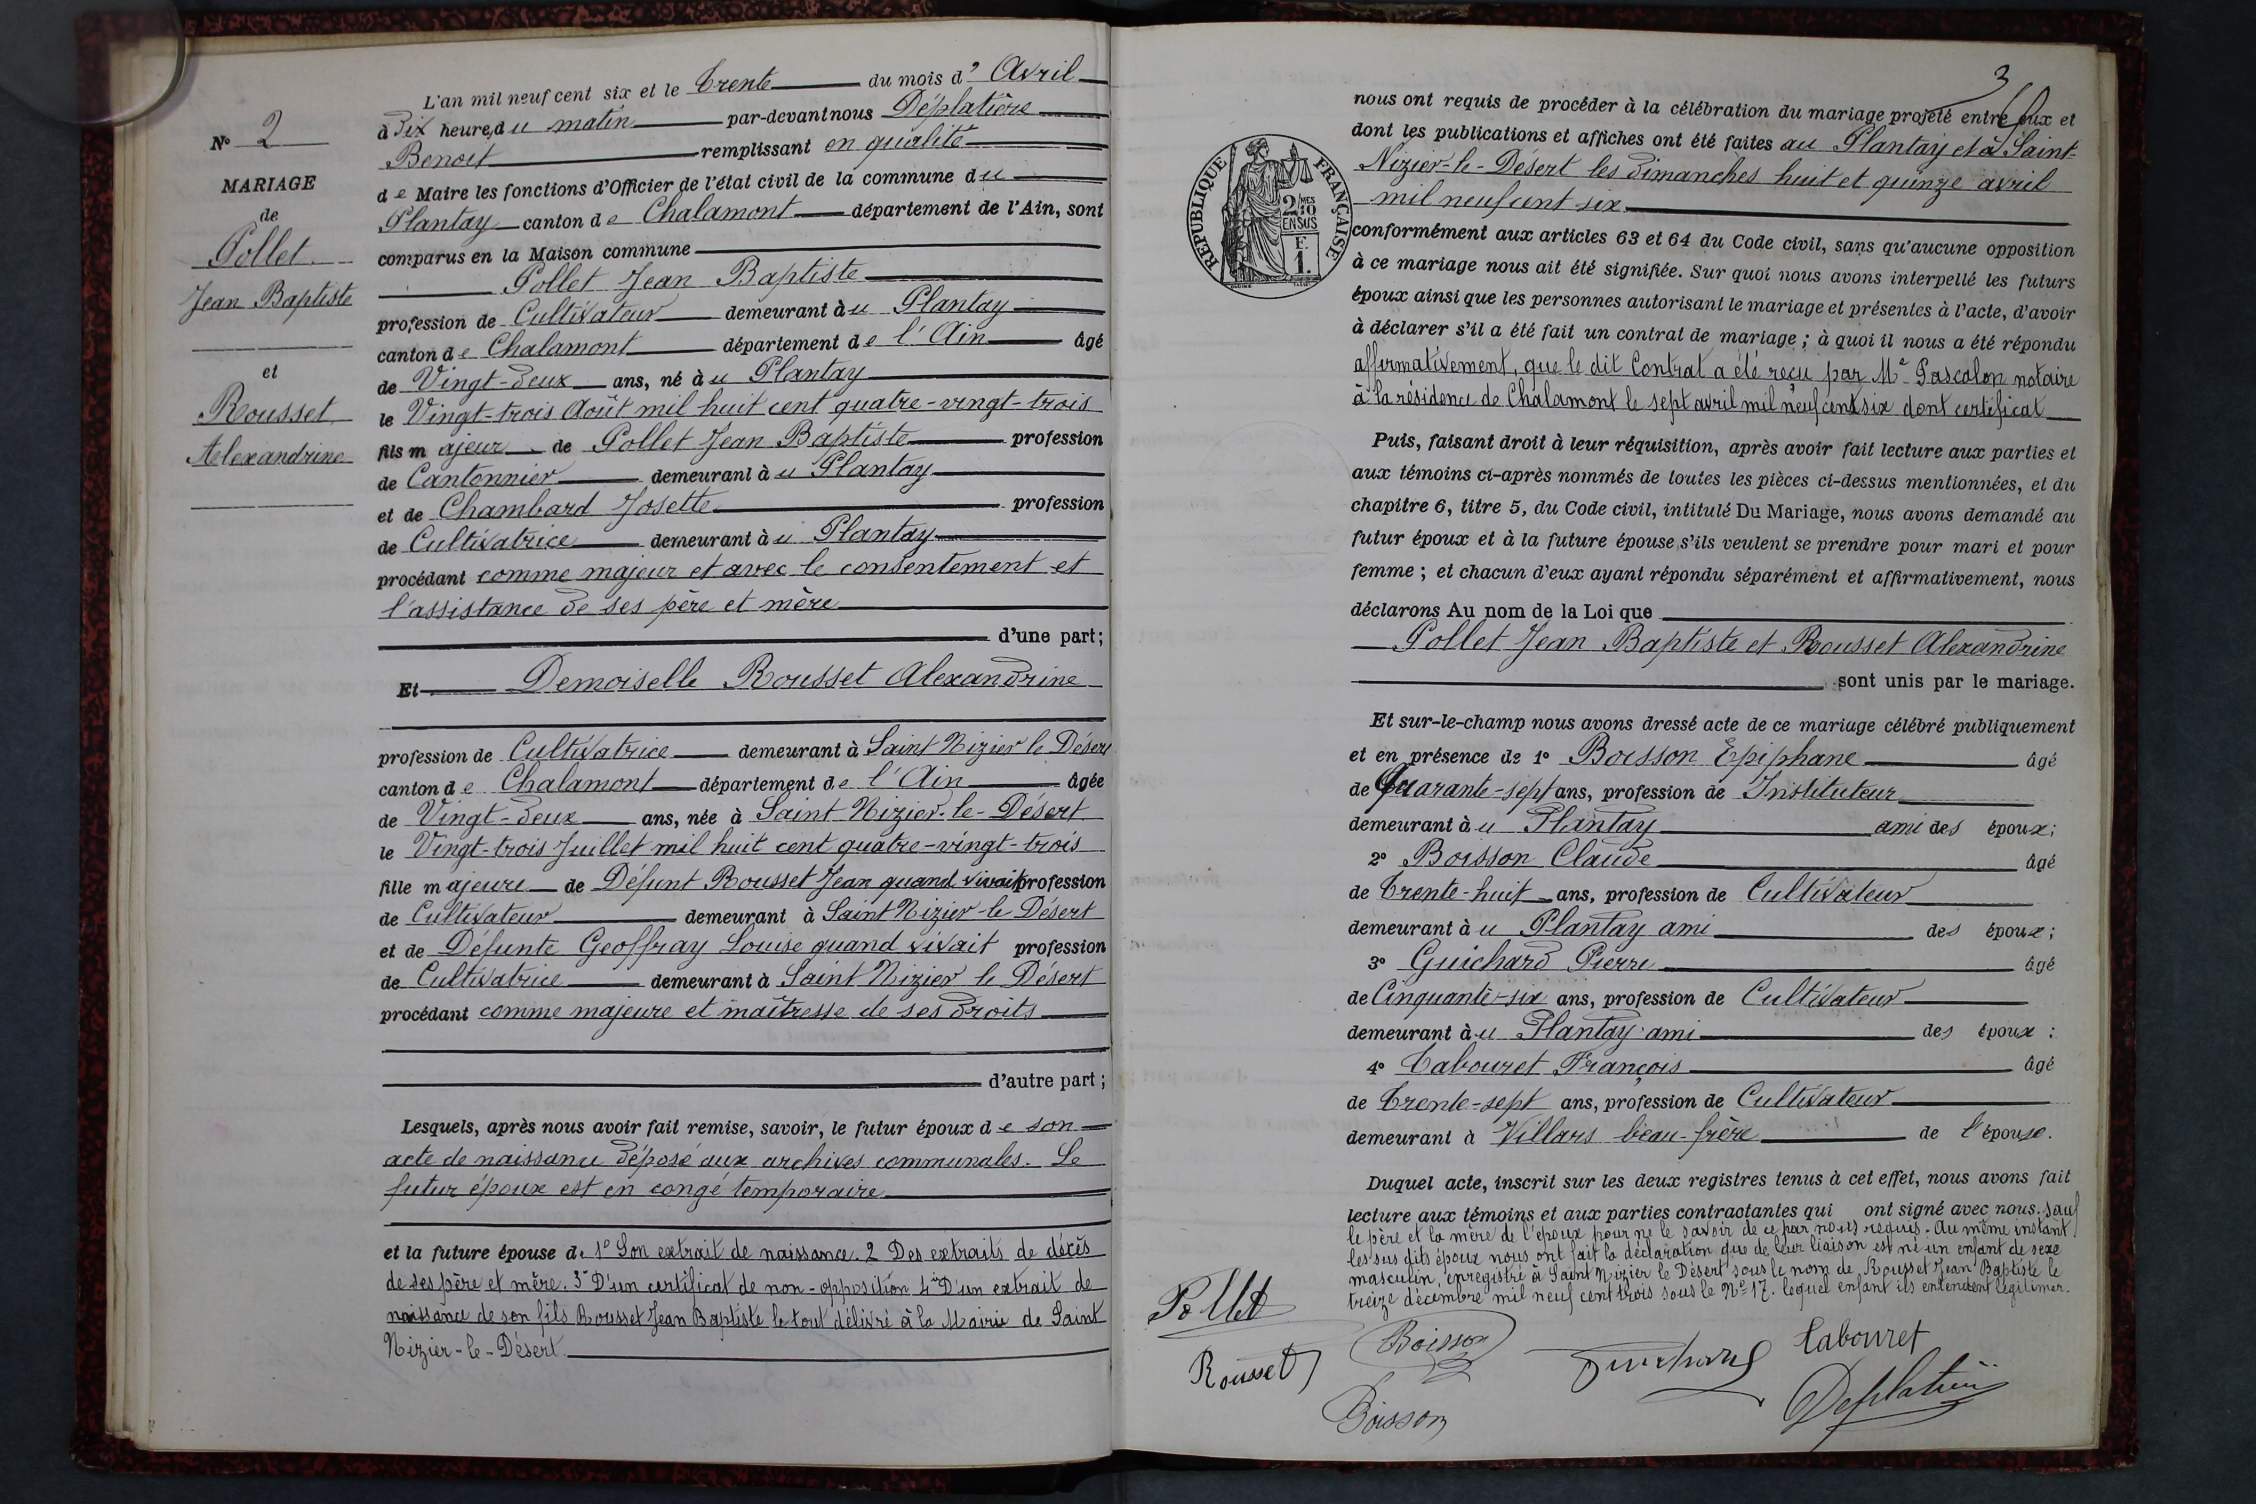 L'an mil neuf cent six et le Trente du mois d' Avril
à Dix heures du matin par-devant nous Déplatière
Benoit remplissant en qualité
de Maire les fonctions d'Officier de l'état civil de la commune du
Plantay canton de Chalamont département de l'Ain, sont
comparus en la Maison commune
Pollet Jean Baptiste
profession de Cultivateur demeurant à u Plantay
canton de Chalamont département de l'Ain âgé
de Vingt-deux ans, né à u Plantay
le Vingt-trois Août mil huit cent quatre-vingt-trois
fils majeur de Pollet Jean Baptiste profession
de Cantonnier demeurant à u Plantay
et de Chambard Josette profession
de Cultivatrice demeurant à u Plantay
procédant comme majeur et avec le consentement et
l'assistance de ses père et mère
d'une part;
Et Demoiselle Rousset Alexandrine
profession de Cultivatrice demeurant à Saint Nizier le Désert
canton de Chalamont département de l'Ain âgée
de Vingt-deux ans, née à Saint Nizier-le-Désert
le Vingt-trois Juillet mil huit cent quatre-vingt-trois
fille majeure de Défunt Rousset Jean quand vivait profession
de Cultivateur demeurant à Saint Nizier-le Désert
et de Défunte Geoffray Louise quand vivait profession
de Cultivatrice demeurant à Saint Nizier le Désert
procédant comme majeure et maîtresse de ses droits
d'autre part;
Lesquels, après nous avoir fait remise, savoir, le futur époux de son
acte de naissance déposé aux archives communales. Le
futur époux est en congé temporaire
et la future épouse de 1º Son extrait de naissance. 2 Des extraits de décès
de ses père et mère. 3º D'un certificat de non-opposition 4º D'un extrait de
naissance de son fils Rousset Jean Baptiste le tout délivré à la Mairie de Saint
Nizier-le-Désert.
Nº 2
MARIAGE
de
Pollet
Jean Baptiste
et
Rousset
Alexandrine
3
nous ont requis de procéder à la célébration du mariage projeté entre eux et
dont les publications et affiches ont été faites au Plantay et à Saint-
Nizier-le-Désert les dimanches huit et quinze avril
mil neuf cent six
conformément aux articles 63 et 64 du Code civil, sans qu'aucune opposition
à ce mariage nous ait été signifiée. Sur quoi nous avons interpellé les futurs
époux ainsi que les personnes autorisant le mariage et présentes à l'acte, d'avoir
à déclarer s'il a été fait un contrat de mariage; à quoi il nous a été répondu
affirmativement, que le dit Contrat a été reçu par Me Pascalon notaire
à la résidence de Chalamont le sept avril mil neuf cent six dont certificat
Puis, faisant droit à leur réquisition, après avoir fait lecture aux parties et
aux témoins ci-après nommés de toutes les pièces ci-dessus mentionnées, et du
chapitre 6, titre 5, du Code civil, intitulé Du Mariage, nous avons demandé au
futur époux et à la future épouse s'ils veulent se prendre pour mari et pour
femme; et chacun d'eux ayant répondu séparément et affirmativement, nous
déclarons Au nom de la Loi que
Pollet Jean Baptiste et Rousset Alexandrine
sont unis par le mariage.
Et sur-le-champ nous avons dressé acte de ce mariage célébré publiquement
et en présence de 1º Boisson Epiphane âgé
de Quarante-sept ans, profession de Instituteur
demeurant à u Plantay ami des époux;
2º Boisson Claude âgé
de Trente-huit ans, profession de Cultivateur
demeurant à u Plantay ami des époux;
3º Guichard Pierre âgé
de Cinquante-six ans, profession de Cultivateur
demeurant à u Plantay ami des époux:
4º Tabouret François âgé
de Trente-sept ans, profession de Cultivateur
demeurant à Villars beau-frère de l'épouse.
Duquel acte, inscrit sur les deux registres tenus à cet effet, nous avons fait
lecture aux témoins et aux parties contractantes qui ont signé avec nous. sauf
le père et la mère de l'époux pour ne le savoir de ce par nous requis. Au même instant
les sus dits époux nous ont fait la déclaration que de leur liaison est né un enfant de sexe
masculin, enregistré à Saint Nizier le Désert sous le nom de Rousset Jean Baptiste le
treize décembre mil neuf cent trois sous le Nº 17. lequel enfant ils entendent légitimer.
Pollet
Rousset
Boisson
Boisson
Guichard
Tabouret
Deplatière
RÉPUBLIQUE FRANÇAISE
2/10 MES
EN SUS
F.
1.